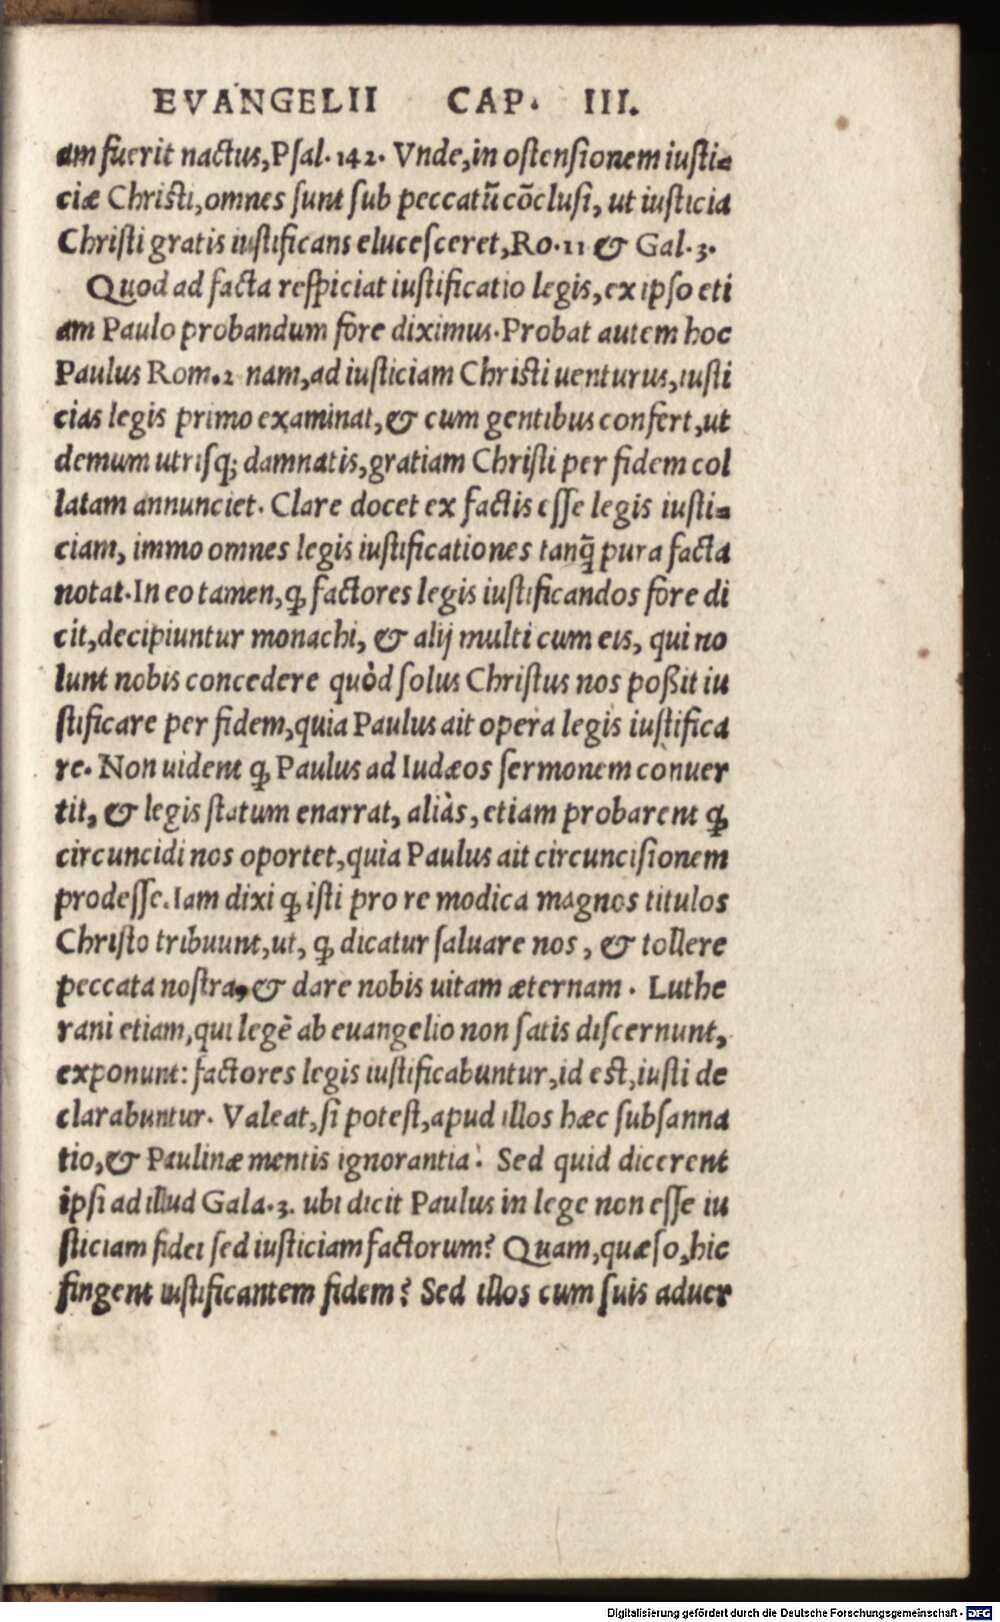 EVANGELII CAP. III.
am fuerit nactus, Psal. 142. Vnde, in ostensionem iusti-
ciæ Christi, omnes sunt sub peccatũ cõclusi, ut iusticia
Christi gratis iustificans elucesceret, Ro. 11 & Gal. 3.
Quod ad facta respiciat iustificatio legis, ex ipso eti
am Paulo probandum fore diximus. Probat autem hoc
Paulus Rom. 2 nam, ad iusticiam Christi uenturus, iusti
cias legis primo examinat, & cum gentibus confert, ut
demum utrisq; damnatis, gratiam Christi per fidem col
latam annunciet. Clare docet ex factis esse legis iusti-
ciam, immo omnes legis iustificationes tanq̃ pura facta
notat. In eo tamen, ꝙ factores legis iustificandos fore di
cit, decipiuntur monachi, & alij multi cum eis, qui no
lunt nobis concedere quòd solus Christus nos poßit iu
stificare per fidem, quia Paulus ait opera legis iustifica
re. Non uident ꝙ Paulus ad Iudæos sermonem conuer
tit, & legis statum enarrat, aliàs, etiam probarent ꝙ
circuncidi nos oportet, quia Paulus ait circuncisionem
prodesse. Iam dixi ꝙ isti pro re modica magnos titulos
Christo tribuunt, ut, ꝙ dicatur saluare nos, & tollere
peccata nostra, & dare nobis uitam æternam. Luthe
rani etiam, qui legẽ ab euangelio non satis discernunt,
exponunt: factores legis iustificabuntur, id est, iusti de
clarabuntur. Valeat, si potest, apud illos hæc subsanna
tio, & Paulinæ mentis ignorantia. Sed quid dicerent
ipsi ad illud Gala. 3. ubi dicit Paulus in lege non esse iu
sticiam fidei sed iusticiam factorum? Quam, quæso, hic
fingent iustificantem fidem? Sed illos cum suis aduer
Digitalisierung gefördert durch die Deutsche Forschungsgemeinschaft - DFG